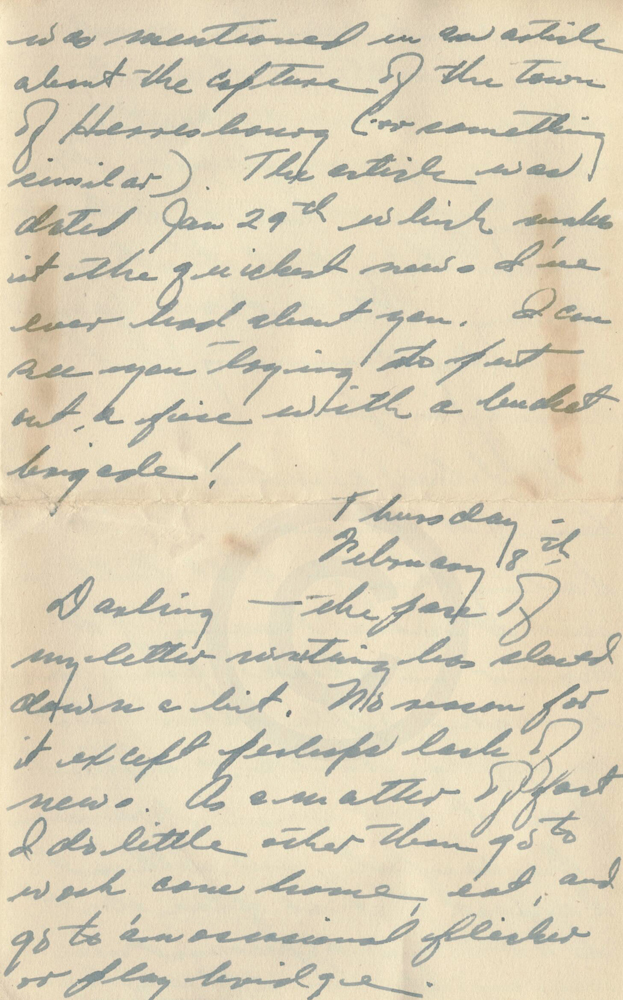 was mentioned in an article
about the capture of the town
of Herresbourg (or something
similar). The article was
dated Jan 29th which makes
it the quickest news I've
ever had about you. I can
see you trying to put
out a fire with a bucket
brigade!
Thursday -
February 8th
Darling — the pace of
my letter writing has slowed
down a bit. No reason for
it except perhaps lack of
news. As a matter of fact
I do little other than go to
work come home, eat, and
go to an occasional flicker
or play bridge.